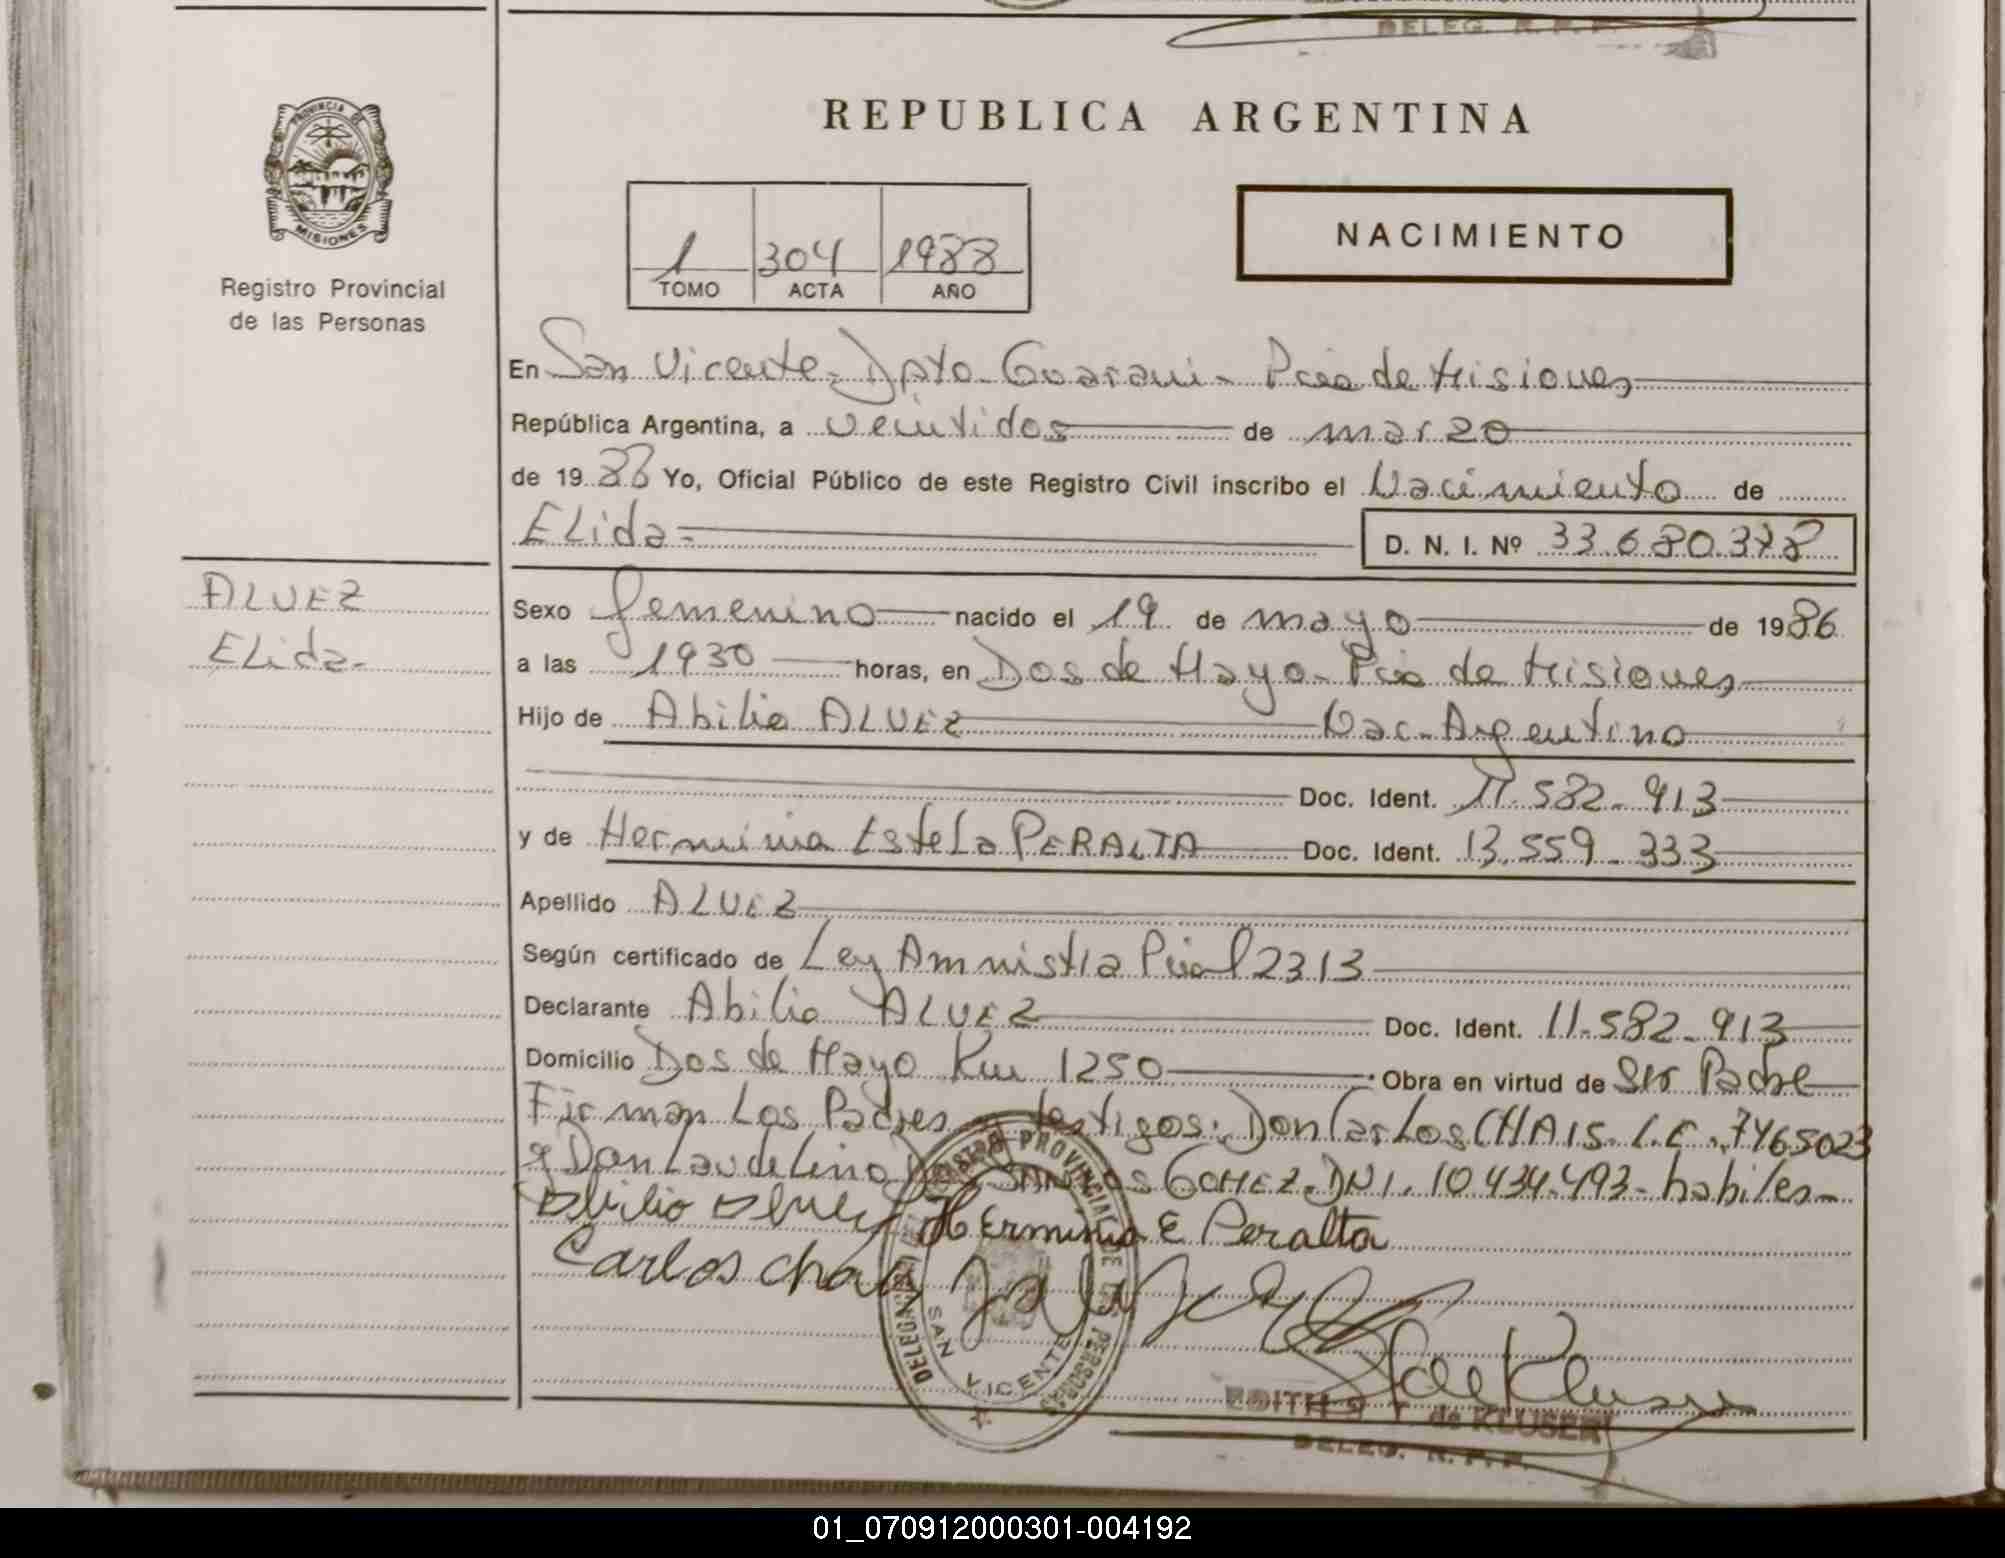 DELEG. R. P. P.
PROVINCIA DE
MISIONES
Registro Provincial
de las Personas
REPUBLICA ARGENTINA
1 304 1988
TOMO ACTA AÑO
NACIMIENTO
En San Vicente - Dpto Guarani - Pcia de Misiones
República Argentina, a veintidos de marzo
de 1988 Yo, Oficial Público de este Registro Civil inscribo el Nacimiento de
Elida - D. N. I. Nº 33.680.378
ALVEZ
Elida -
Sexo femenino nacido el 19 de mayo de 1986
a las 1930 horas, en Dos de Mayo - Pcia de Misiones
Hijo de Abilio ALVEZ Nac. Argentino
Doc. Ident. 11.582.913
y de Herminia Estela PERALTA Doc. Ident. 13.559.333
Apellido ALVEZ
Según certificado de Ley Amnistia Pcial 2313
Declarante Abilio ALVEZ Doc. Ident. 11.582.913
Domicilio Dos de Mayo Km 1250 Obra en virtud de Ser Padre
Firman Los Padres testigos: Don Carlos CHAIS. L.E. 7465023
y Don Laudelino GOMEZ. DNI. 10.434.493 - habiles -
Abilio Alvez Herminia E Peralta
Carlos Chais
REGISTRO PROVINCIAL DE LAS PERSONAS
DELEGACION
SAN VICENTE
EDITH T. de KLUSER
DELEG. R. P. P.
01_070912000301-004192